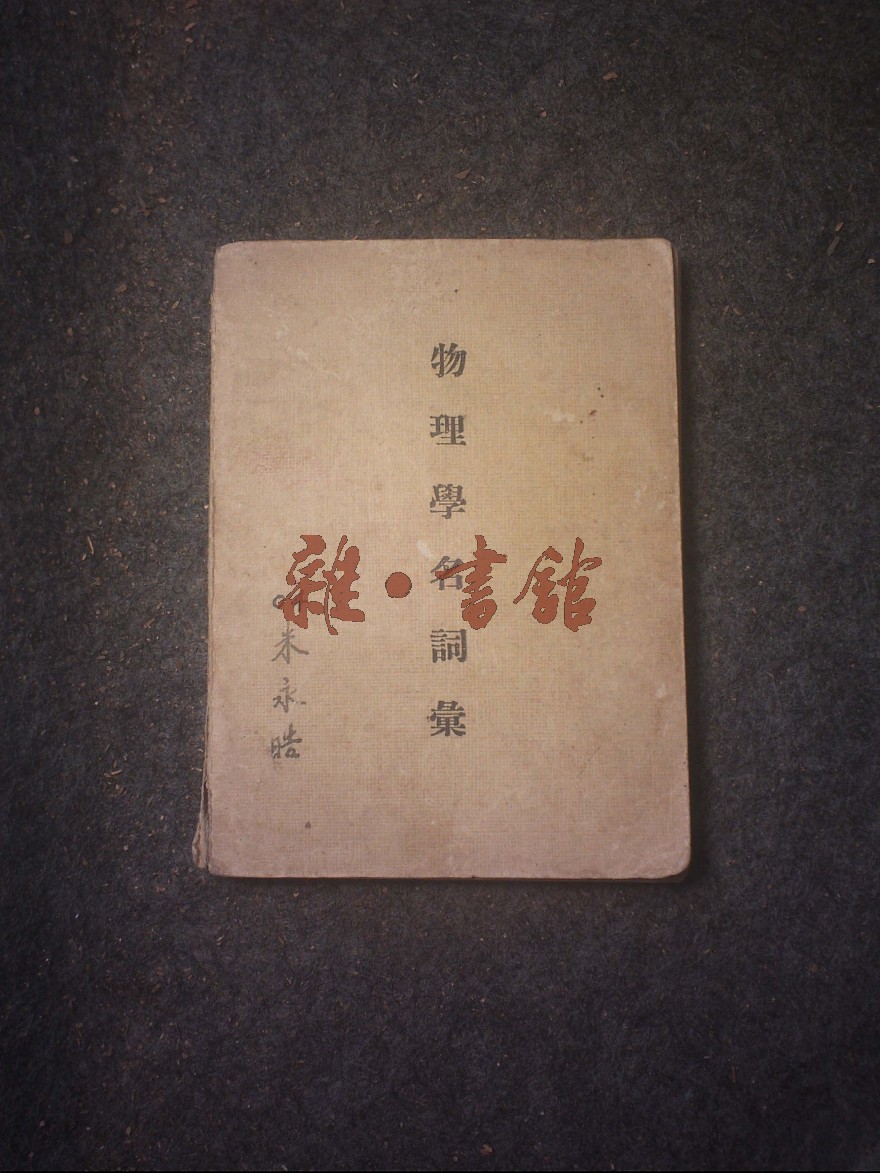 物理學名詞彙
雜·書館
朱永皓